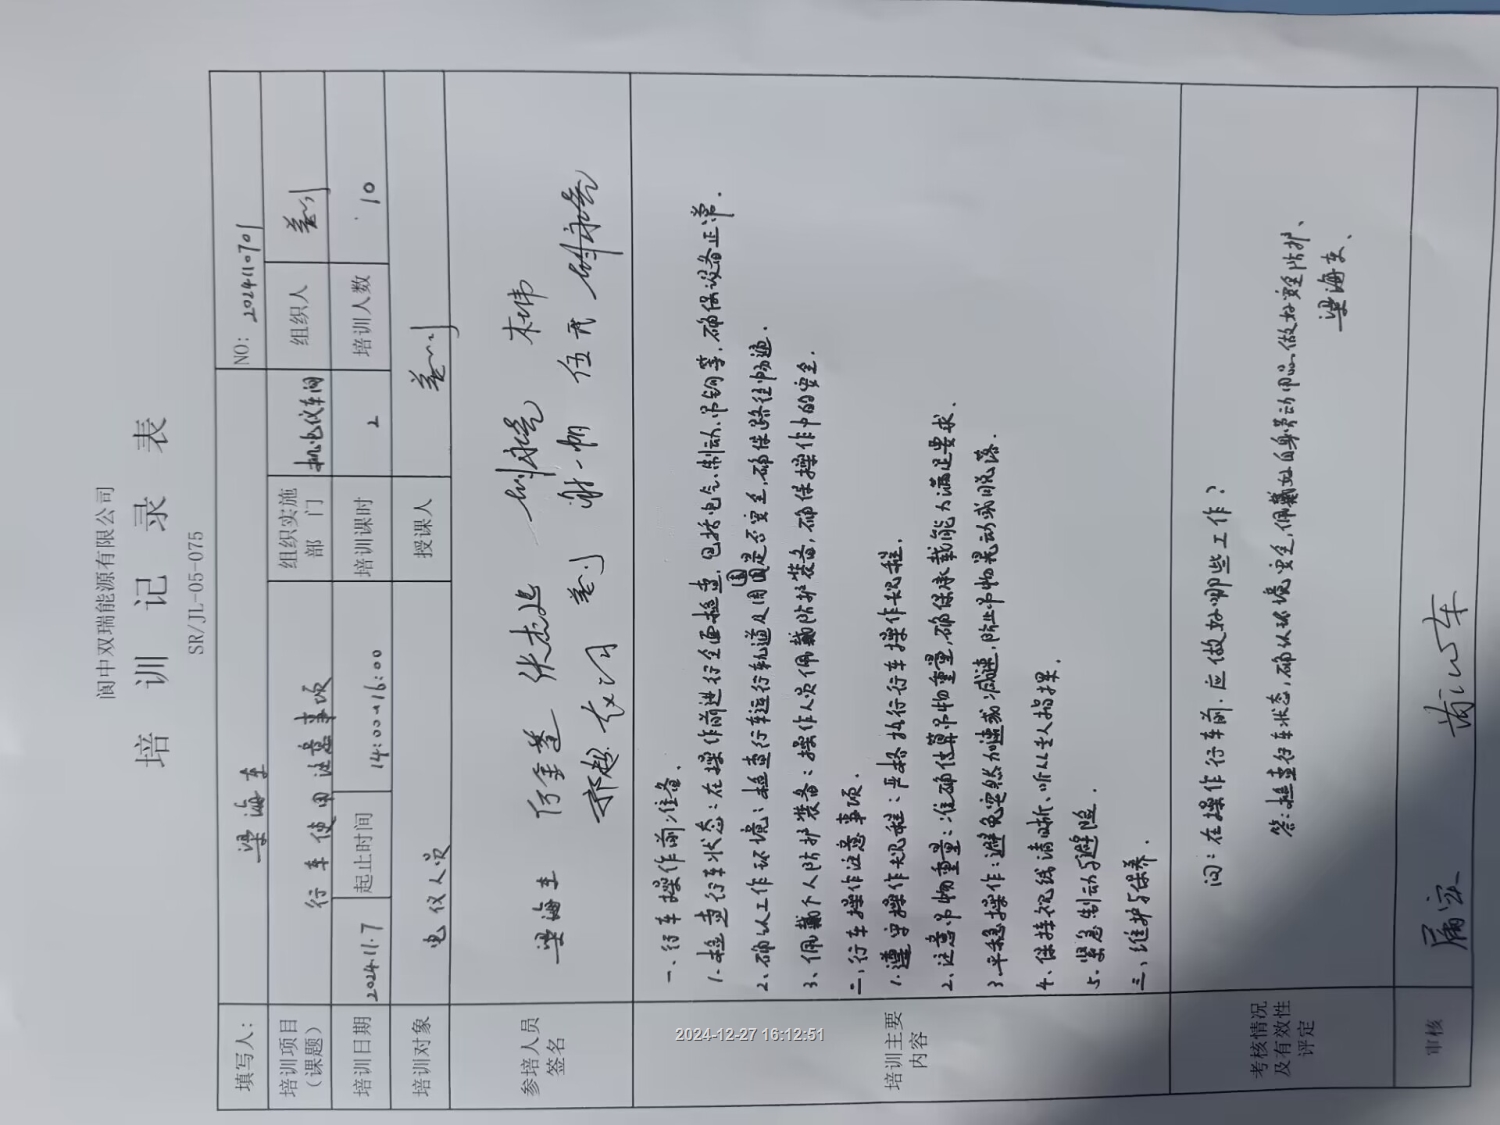 阆中双瑞能源有限公司
培训记录表
SR/JL-05-075
填写人： 梁海车 NO: 2024110701
培训项目（课题） 行车使用注意事项 组织实施部门 机电仪车间 组织人
培训日期 2024.11.7 起止时间 14:00-16:00 培训课时 2 培训人数 10
培训对象 电仪人员 授课人
参培人员签名 梁海车 张志兵 林伟
谢一帆 伍
培训主要内容
一、行车操作前准备.
1.检查行车状态：在操作前进行全面检查，包括电气、制动、吊钩等，确保设备正常.
2、确认工作环境：检查行车运行轨道及周围是否安全，确保路径畅通.
3、佩戴个人防护装备：操作人员佩戴防护装备，确保操作中的安全.
二，行车操作注意事项.
1.遵守操作规程：严格执行行车操作规程.
2、注意吊物重量：准确估算吊物重量，确保承载能力满足要求.
3.平稳操作：避免突然加速或减速，防止吊物晃动或脱落.
4、保持视线清晰、听从专人指挥.
5.紧急制动与避险.
三、维护与保养.
考核情况及有效性评定
问：在操作行车前.应做好哪些工作？
答：检查行车状态，确认环境安全，佩戴好自身劳动用品，做好安全防护、
梁海车、
审核
2024-12-27 16:12:51